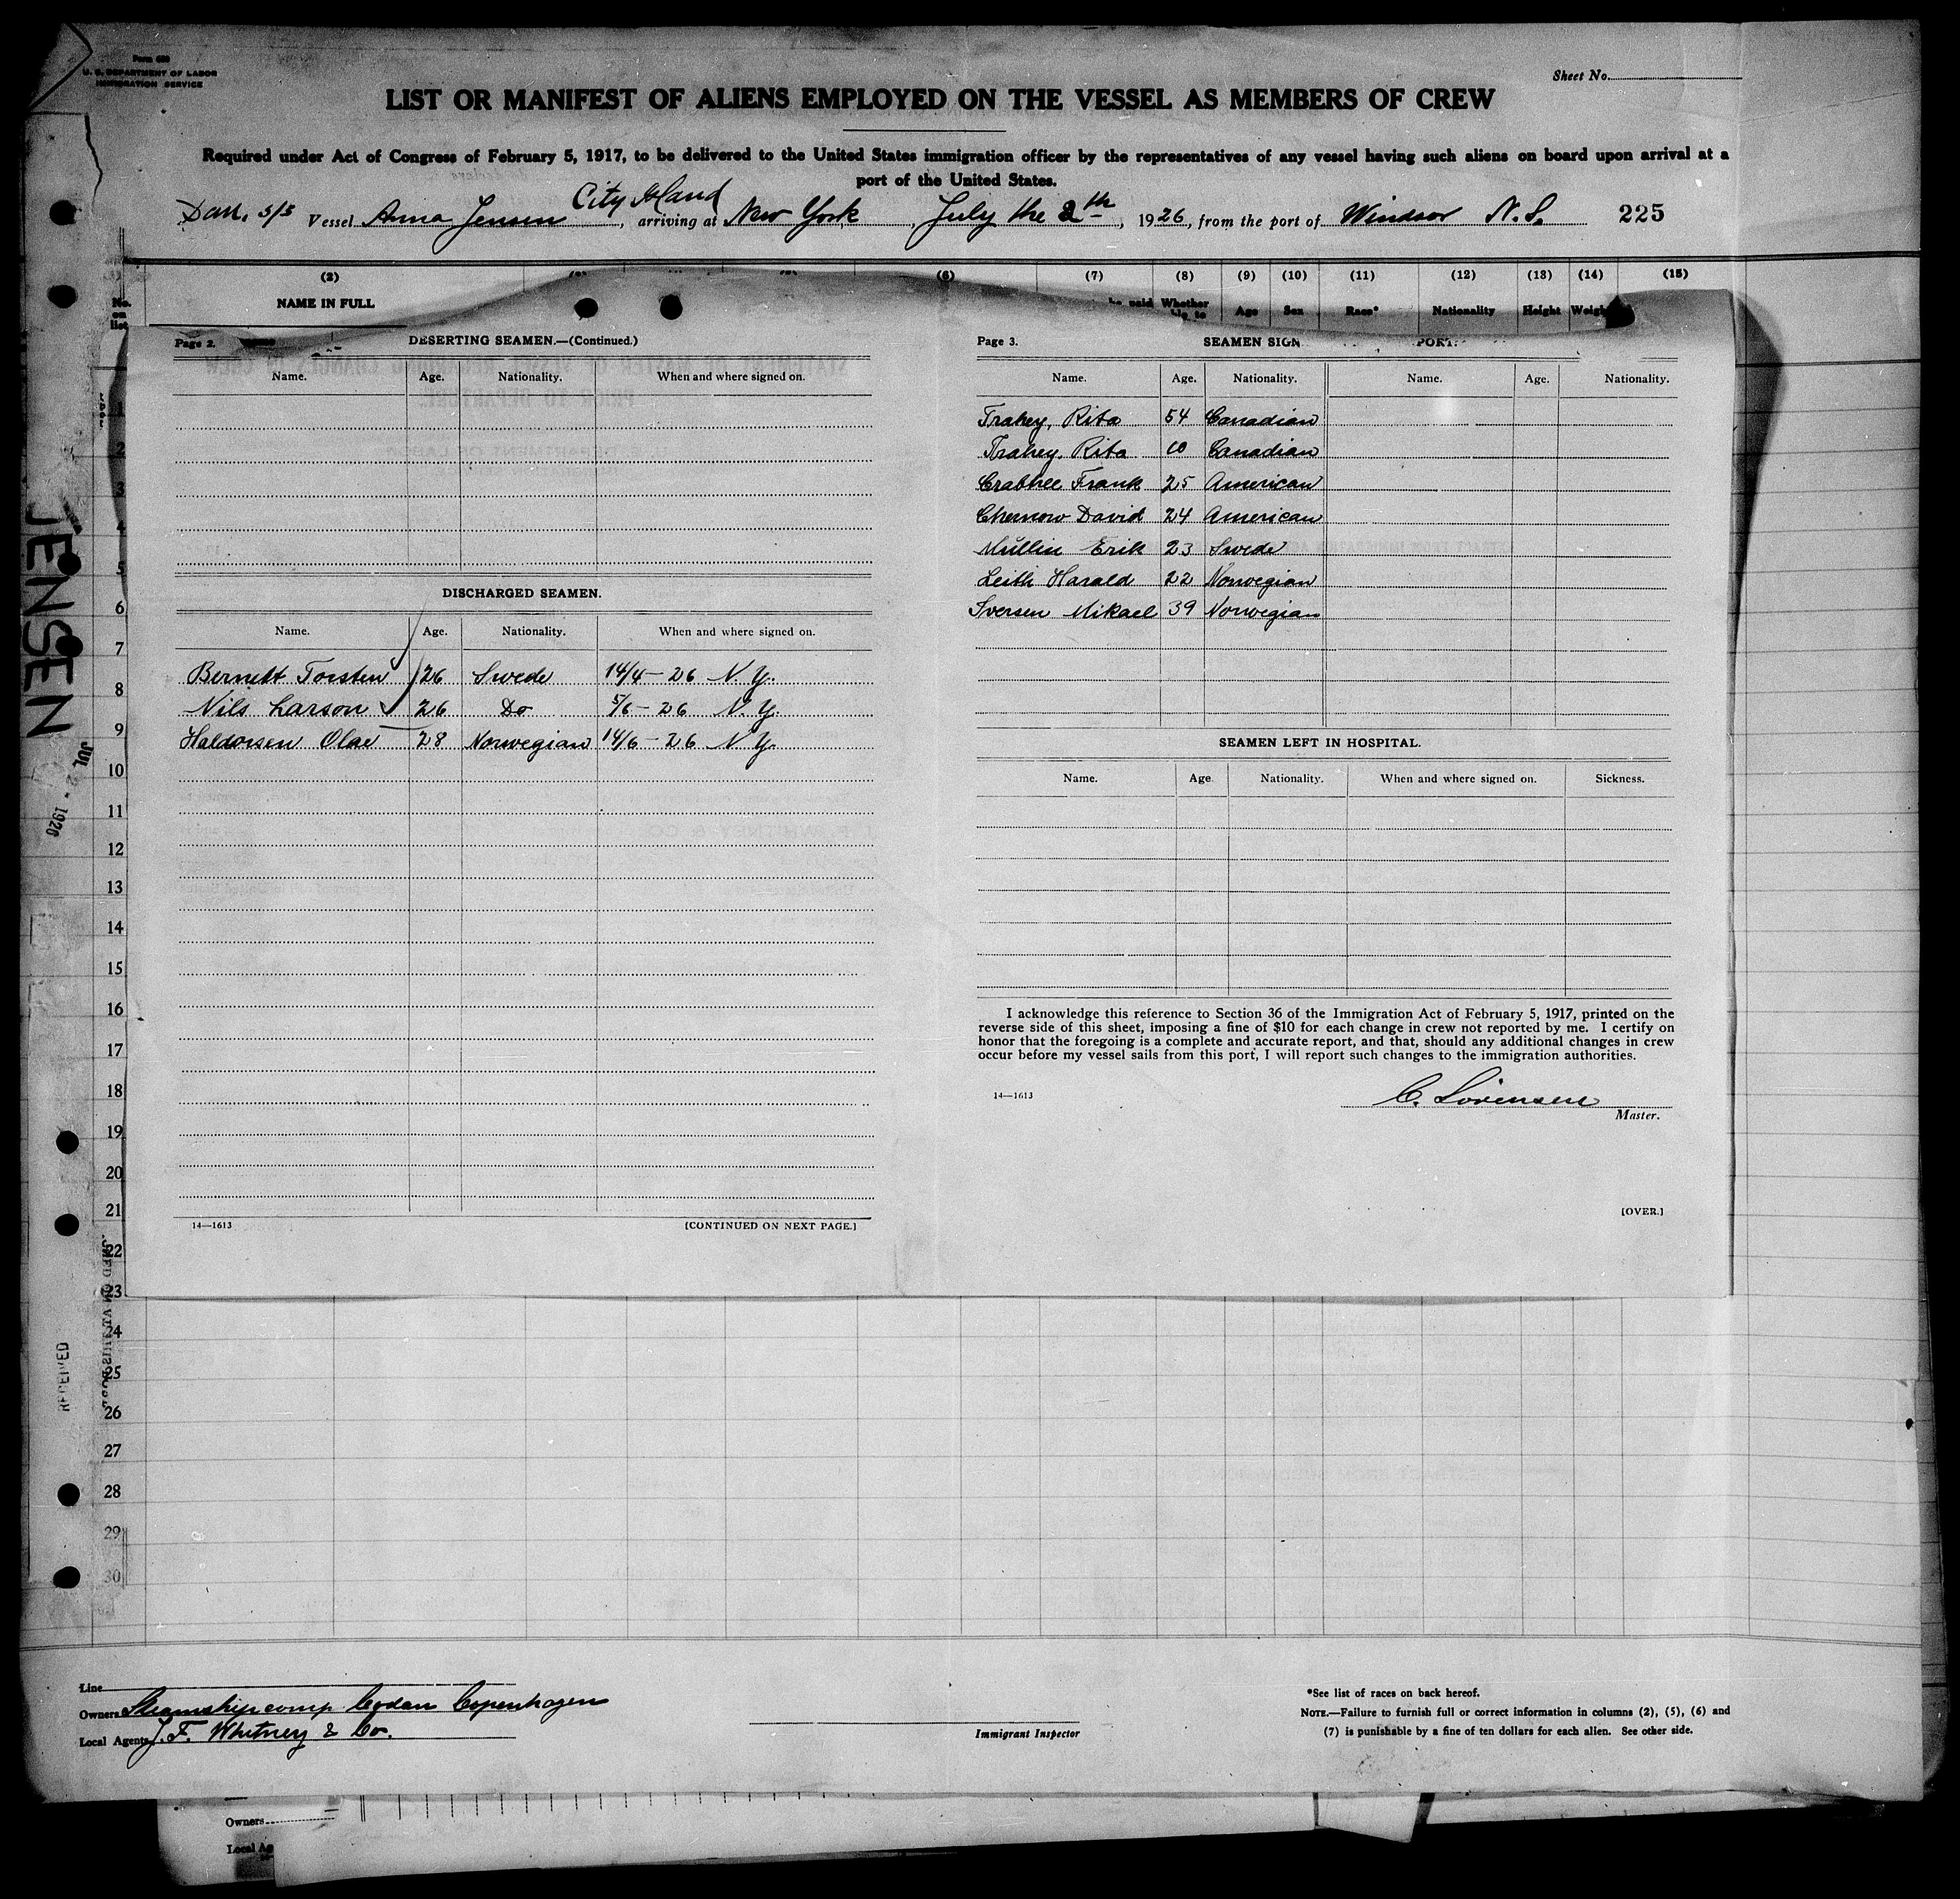 Form 689
U. S. DEPARTMENT OF LABOR
IMMIGRATION SERVICE
Sheet No.
LIST OR MANIFEST OF ALIENS EMPLOYED ON THE VESSEL AS MEMBERS OF CREW
Required under Act of Congress of February 5, 1917, to be delivered to the United States immigration officer by the representatives of any vessel having such aliens on board upon arrival at a
port of the United States.
City Island
Dan. s/s Vessel Anna Jensen, arriving at New York, July the 2th, 1926, from the port of Windsor N. S. 225
(2) (6) (7) (8) (9) (10) (11) (12) (13) (14) (15)
No. on list NAME IN FULL paid Whether to Age Sex Race* Nationality Height
Page 2. DESERTING SEAMEN.—(Continued.)
Name. Age. Nationality. When and where signed on.
DISCHARGED SEAMEN.
Name. Age. Nationality. When and where signed on.
Bernett Torsten 26 Swede 14/4-26 N. Y.
Nils Larson 26 Do 5/6-26 N. Y.
Haldorsen Olav 28 Norwegian 14/6-26 N Y.
14—1613 [CONTINUED ON NEXT PAGE.]
Page 3. SEAMEN SIGN PORT.
Name. Age. Nationality. Name. Age. Nationality.
Trahey, Rita 54 Canadian
Trahey, Rita 10 Canadian
Crabtree Frank 25 American
Chernow David 24 American
Mullin Erik 23 Swede
Leith Harald 22 Norwegian
Iversen Mikael 39 Norwegian
SEAMEN LEFT IN HOSPITAL.
Name. Age. Nationality. When and where signed on. Sickness.
I acknowledge this reference to Section 36 of the Immigration Act of February 5, 1917, printed on the
reverse side of this sheet, imposing a fine of $10 for each change in crew not reported by me. I certify on
honor that the foregoing is a complete and accurate report, and that, should any additional changes in crew
occur before my vessel sails from this port, I will report such changes to the immigration authorities.
14—1613
C. Sörensen
Master.
[OVER.]
1
2
3
4
5
6
7
8
9
10
11
12
13
14
15
16
17
18
19
20
21
22
23
24
25
26
27
28
29
30
JENSEN
JUL 2 - 1926
RECEIVED
Line
Owners Steamshipcomp Codan Copenhagen
Local Agents J. F. Whitney & Co.
Immigrant Inspector
*See list of races on back hereof.
NOTE.—Failure to furnish full or correct information in columns (2), (5), (6) and
(7) is punishable by a fine of ten dollars for each alien. See other side.
Owners
Local